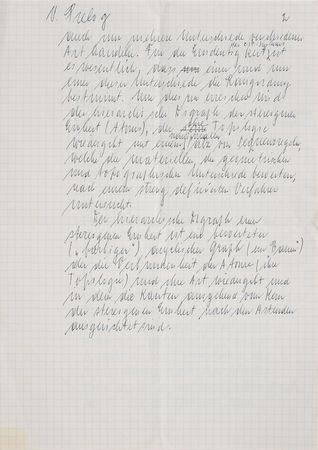 V. Prelog 2
auch um mehrere Unterschiede verschiedener
Art handeln. Für die Eindeutigkeit
der CIP-Systems ist
es wesentlich, dass einer und nur
einer dieser Unterschiede die Rangordnung
bestimmt. Um dies zu erreichen wird
der hierarchische Digraph der stereogenen
Einheit (Atoms), der ihre Topologie
wiedergibt mit einem Satz von Sequenzregeln,
welche die materiellen, die geometrischen
und topographischen Unterschiede bewerten,
nach einem streng definierten Verfahren
untersucht.
Der hierarchische Digraph einer
stereogenen Einheit ist ein bewerteter
("farbiger") acyclischer Graph (ein "Baum")
der die Verbundenheit der Atome (ihre
Topologie) und ihre Art wiedergibt und
in dem die Kanten ausgehend vom Kern
der stereogenen Einheit nach den
ausgerichtet sind.